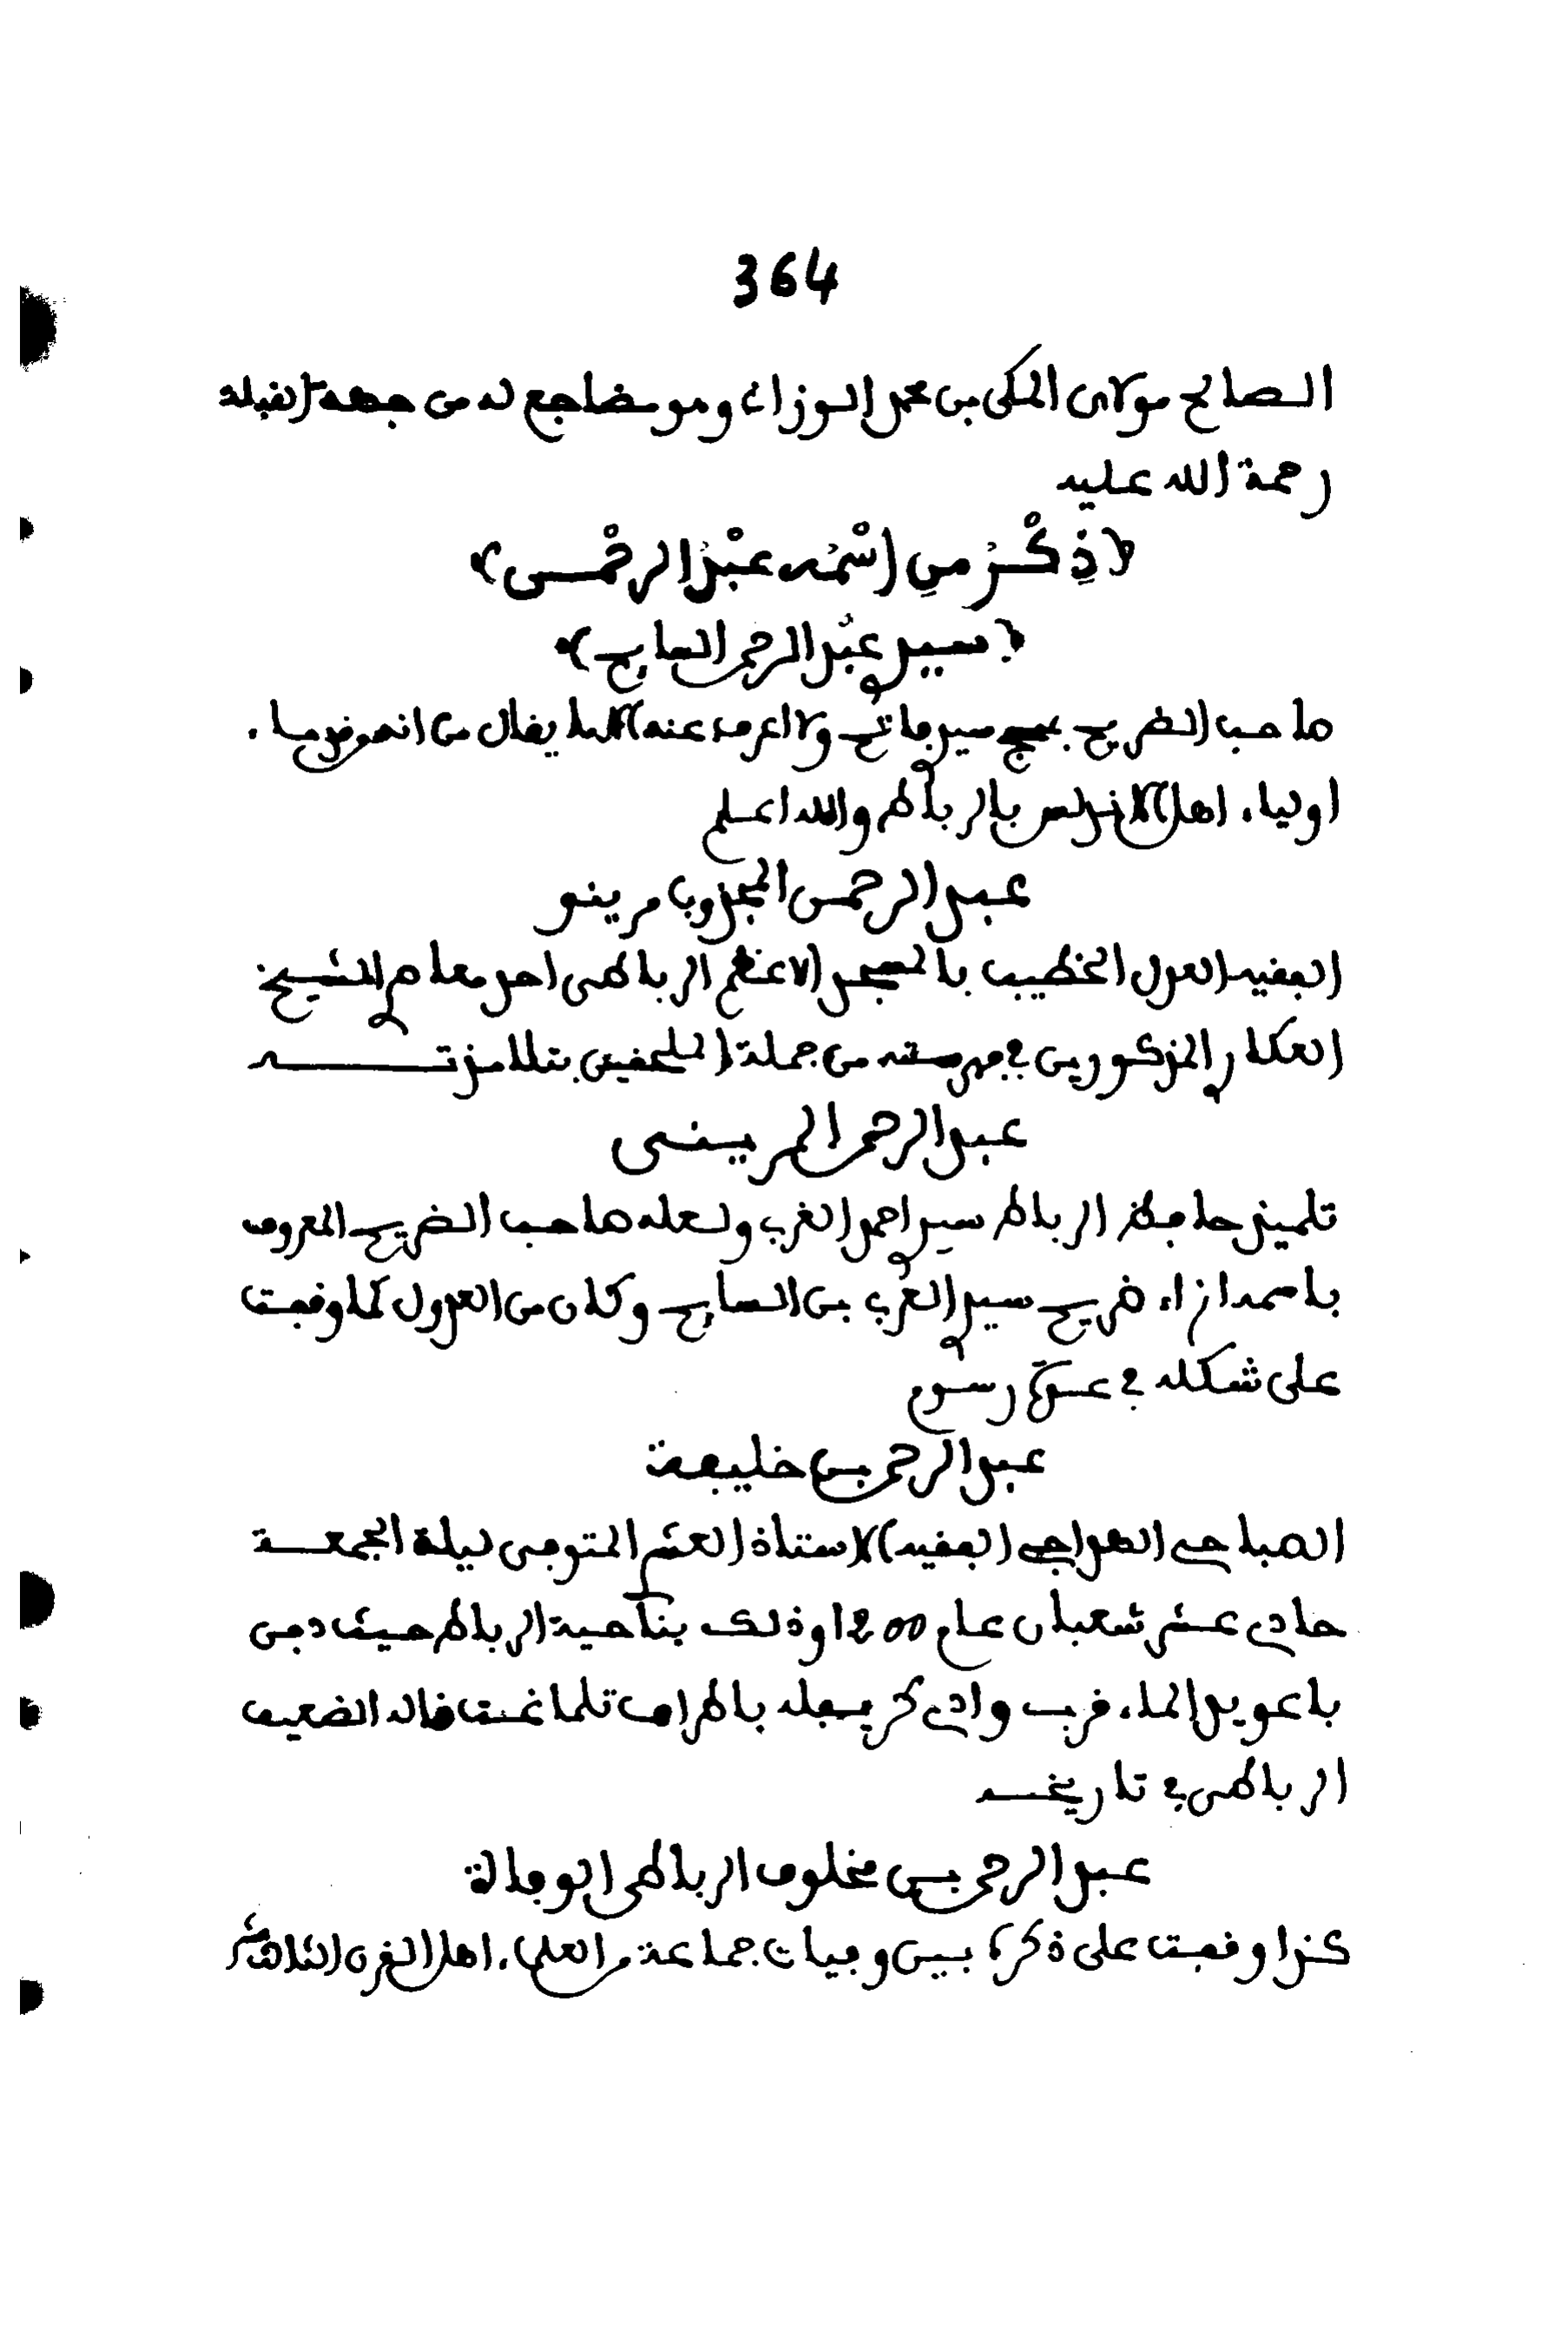 364
الصالح مولاي المكي بن محمد الوزاني وهو مضاجع له من جهة القبلة
رحمة الله عليه
(ذِكْرُ منِ اسْمُه عبْدُ الرحْمن)
(سيدي عبْد الرحمن السايح)
صاحب الضريح بحومة سيدي فاتح ولا اعرف عنه الا ما يقال من انه من قدماء
اولياء اهل الاندلس بالرباط والله اعلم
عبد الرحمن المجذوب مرينو
الفقيه العدل الخطيب بالمسجد الاعظم الرباطي احد معاصري الشيخ
العكاري المذكورين في فهرسته من جملة الملحقين بتلامذته
عبد الرحمن المريني
تلميذ حافظ الرباط سيدي احمد الغربي ولعله صاحب الضريح المعروف
باسمه ازاء ضريح سيدي الغربي بن السايح وكان من العدول كما وقفت
على شكله في عدة رسوم
عبد الرحمن بن خليفة
الصباحي الهواجي الفقيه الاستاذ العشري المتوفى ليلة الجمعة
حادي عشر شعبان عام 1200 وذلك بناحية الرباط حيث دفن
باعويد الماء قرب وادي كريفلة باطراف تلماغت قاله الضعيف
الرباطي في تاريخه
عبد الرحمن بن مخلوف الرباطي ابو فالة
كذا وقفت على ذكره بين وفيات جماعة من العلماء اهل القرن الثالث عشر